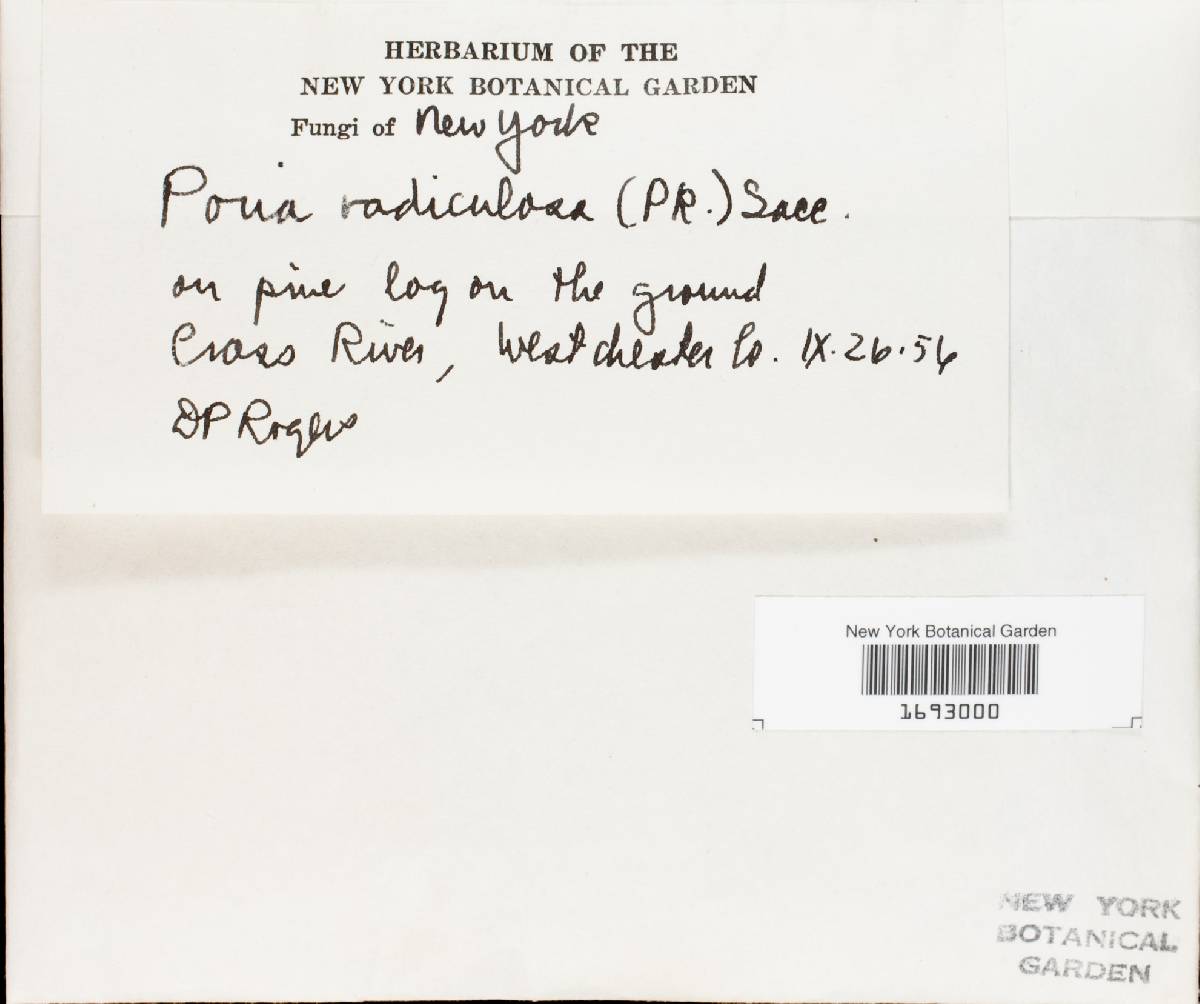 HERBARIUM OF THE
NEW YORK BOTANICAL GARDEN
Fungi of New York
Poria radiculosa (PK.) Sacc.
on pine log on the ground
Cross River, Westchester Co. IX.26.56
DP Rogers
New York Botanical Garden
1693000
NEW YORK
BOTANICAL
GARDEN